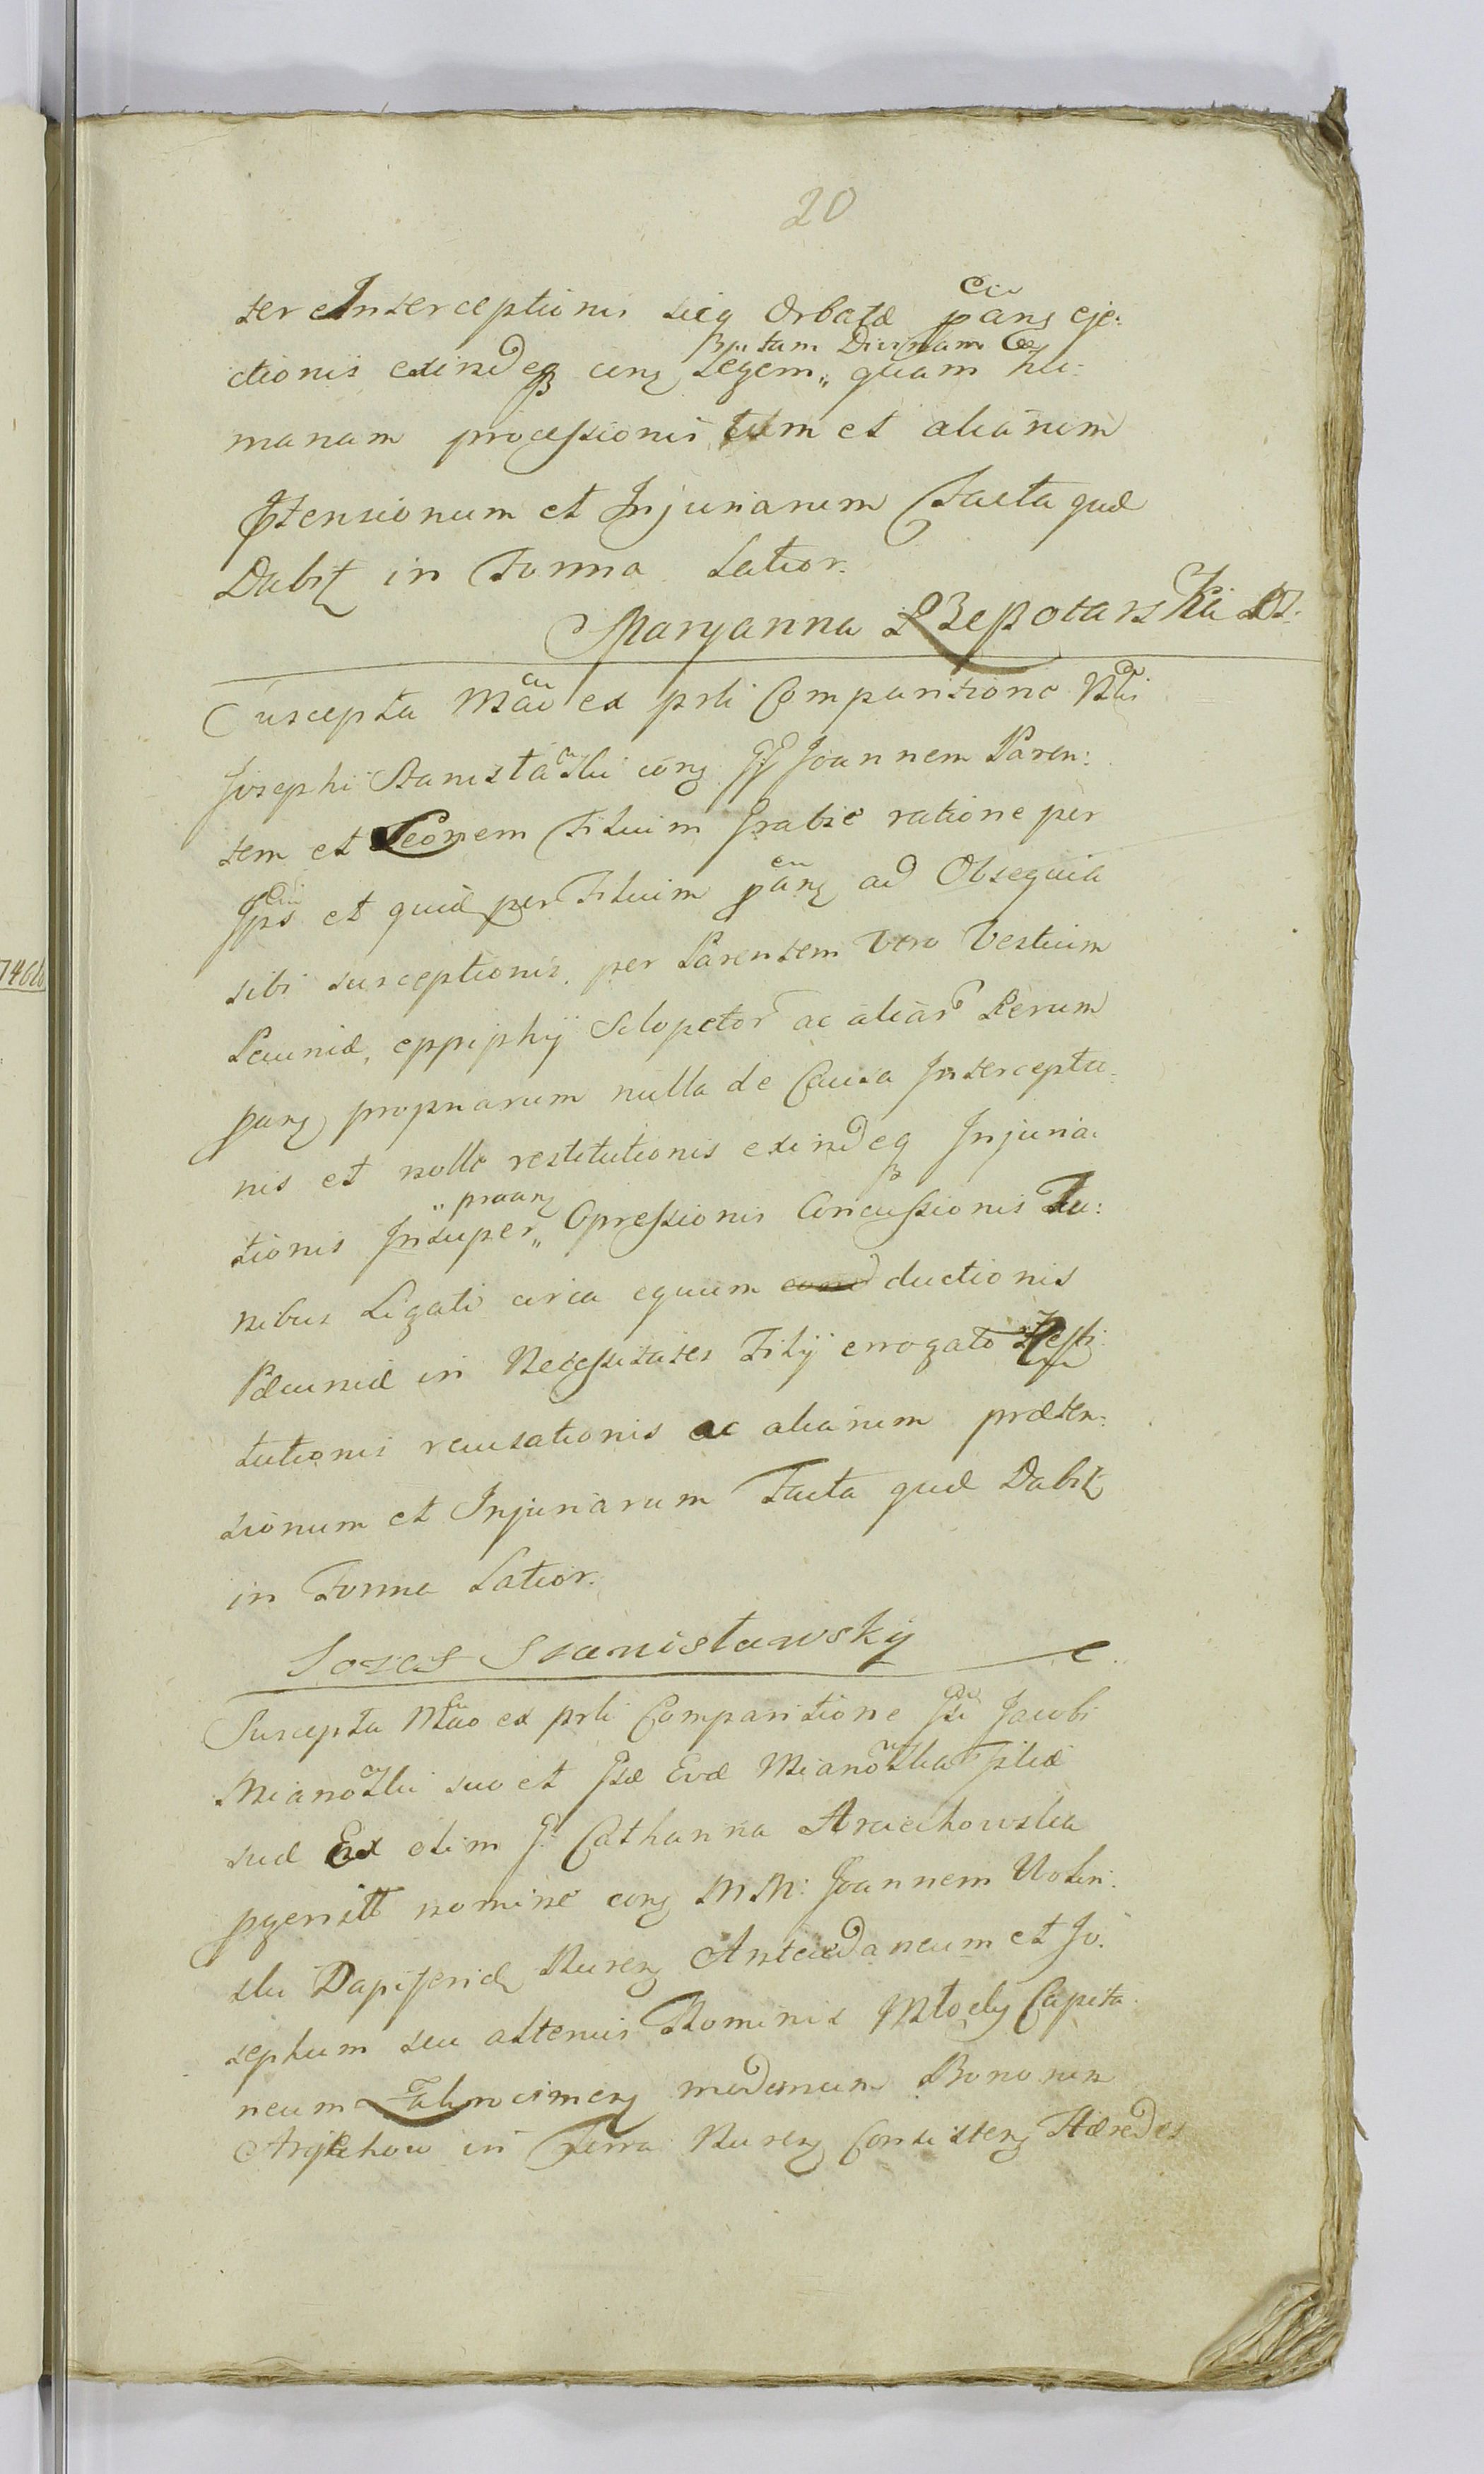 20
ter Interceptionis sicq Orbatæ pang eje:
ctionis exindeq cong Legem „ tam Divinam quam hu:
manam processionis tum et aliarum
Ptensionum et Injuriarum Facta quæ
Dabit in Forma Latior.
Maryanna
Suscepta Mao ex prli Comparitione Nbi
Josephi Stanisławski cong GG Joannem Paren:
tem et Leonem Filium Grabie ratione per
Ipsos et quid per Filium pang ad Obsequia
sibi susceptionis, per Parentem vero Vestium
Pecuniæ, eppiphij Sclopetor ac aliar Rerum
pang propriarum nulla de Causa Interceptio
nis et nolle restitutionis exindeq Injuria
tionis Insuper „ praang „ Opressionis Concussionis Fu:
nibus Ligati circa equum ductionis
Pæcuniæ in Necessitates Filij errogato Resti
tutionis recusationis ac aliarum præten:
sionum et Injuriarum Facta quæ Dabit
in Forma Latior.
Jozef Stanisławskij
Suscepta Mao ex prli Comparitione Gsi Jacobi
Mianowski suo et Gsæ Evæ Mianowska Filiæ
suæ Ex olim G: Catharina Araciechowska
pgenitt nomine cong MM: Joannem Wolin:
ski Dapiferid Nureng Antecedaneum et Jo:
sephum seu alterius Nominis Młocky Capita
neum modernum Bonorum
in Terra Nureng Consisteng Hæredes
746